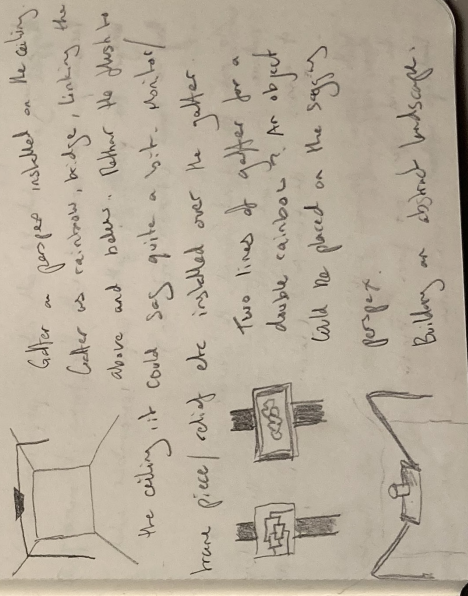 Gaffer on perspex installed on the ceiling.
Gaffer as rainbow, bridge, linking the
above and below. Rather the flush to
the ceiling, it could sag quite a bit. Monitor/
frame piece/ relief etc installed over the gaffer.
Two lines of gaffer for a
double rainbow? An object
could be placed on the sagging
perspex.
Building an abstract landscape.